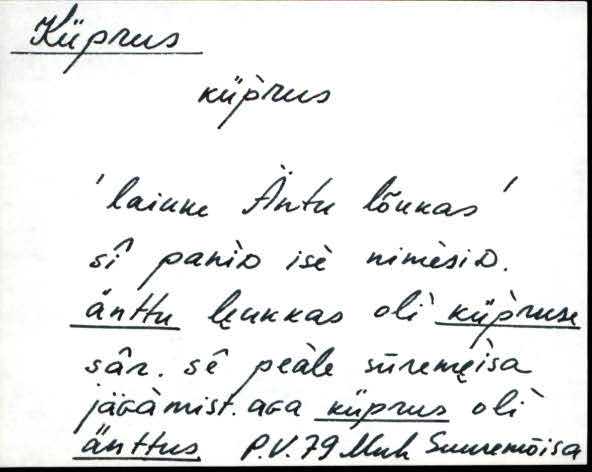 Küprus
küp̀rus
'laiuke Äntu lõukas'
sî panìD isè nimèsiD.
änttu leukkas olì küp̀ruse
sâr. sê peàle sūremęisa
jäGàmist. aGa küprus olì
änttus P.V. 79 Muh Suuremõisa